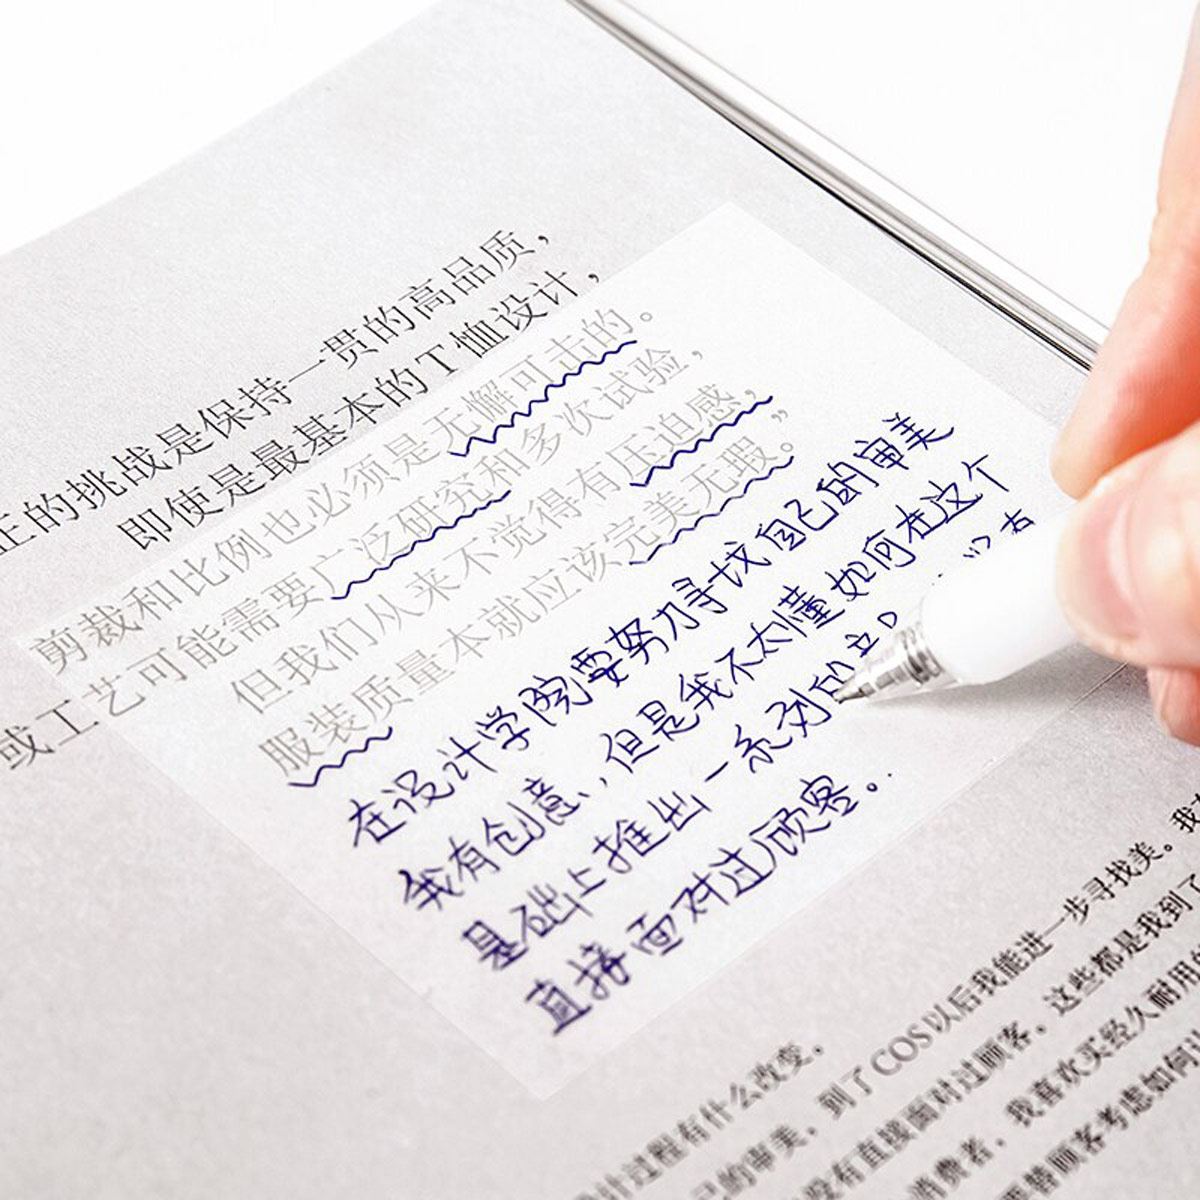 正的挑战是保持一贯的高品质，
即使是最基本的T恤设计，
剪裁和比例也必须是无懈可击的。
或工艺可能需要广泛研究和多次试验，
但我们从来不觉得有压迫感，
服装质量本就应该完美无瑕。”
在设计学院要努力寻找自己的审美
我有创意，但是我不太懂如何在这个
基础上推出一系列
直接面对过顾客。
计过程有什么改变。
己的审美，到了COS以后我能进一步寻找美。我
没有直接面对过顾客。这些都是我到了
消费者，我喜欢买经久耐用
替顾客考虑如何